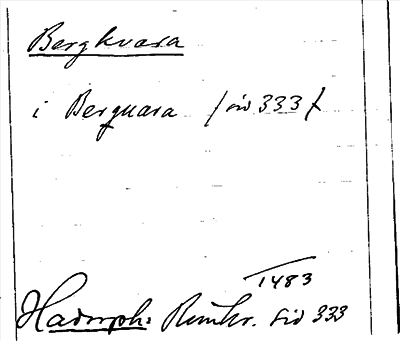 Bergkvara
i Berguara /sid 333/
1483
Hadorph: Rimkr. Sid 333